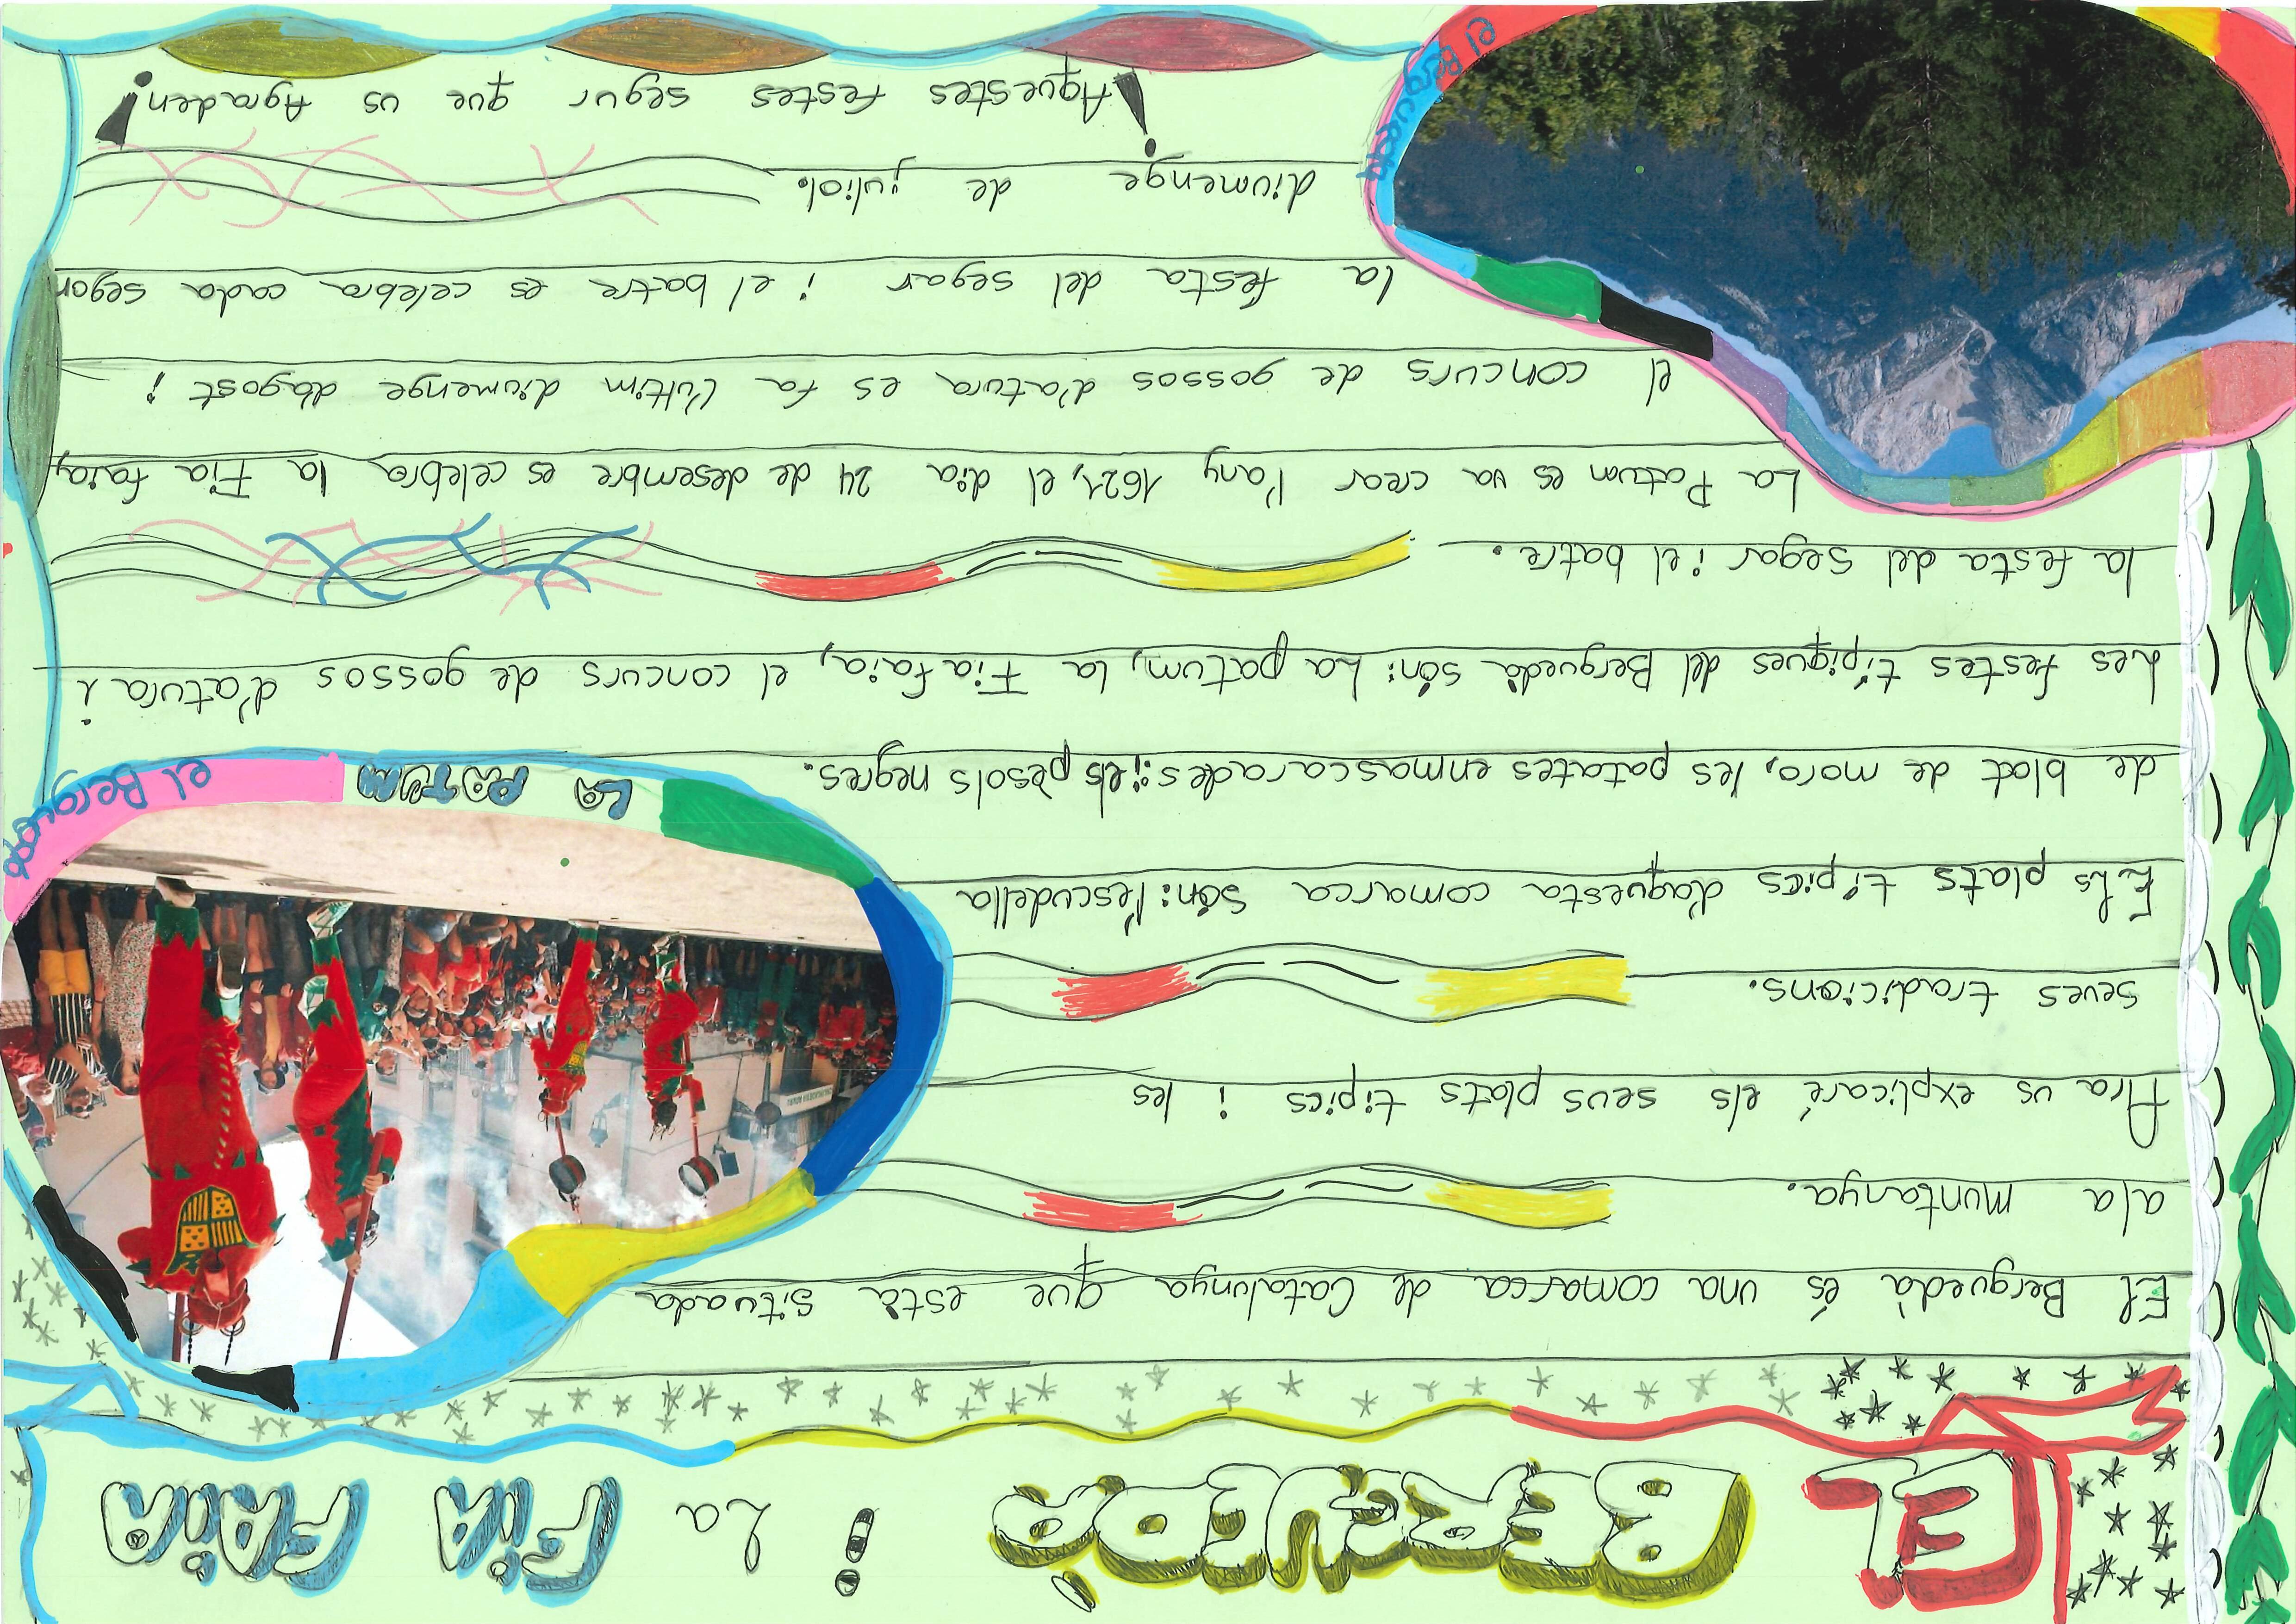 EL BERGUEDÀ i La FIA FAIA
El Berguedà és una comarca de Catalunya que està situada
a la muntanya.
Ara us explicaré els seus plats tipics i les
seves tradicions.
Els plats típics d'aquesta comarca són: l'escudella
de blat de moro, les patates enmascarades i els pèsols negres.
Les festes típiques del Berguedà són: La patum, la Fia faia, el concurs de gossos d'atura i
la festa del segar i el batre.
La Patum es va crear l'any 1621, el dia 24 de desembre es celebra la Fia faia,
el concurs de gossos d'atura es fa l'ultim diumenge d'agost i
la festa del segar i el batre es celebra cada segon
diumenge de juliol.
¡Aquestes festes segur que us Agraden!
el Berguedà
LA PATUM
el Berguedà